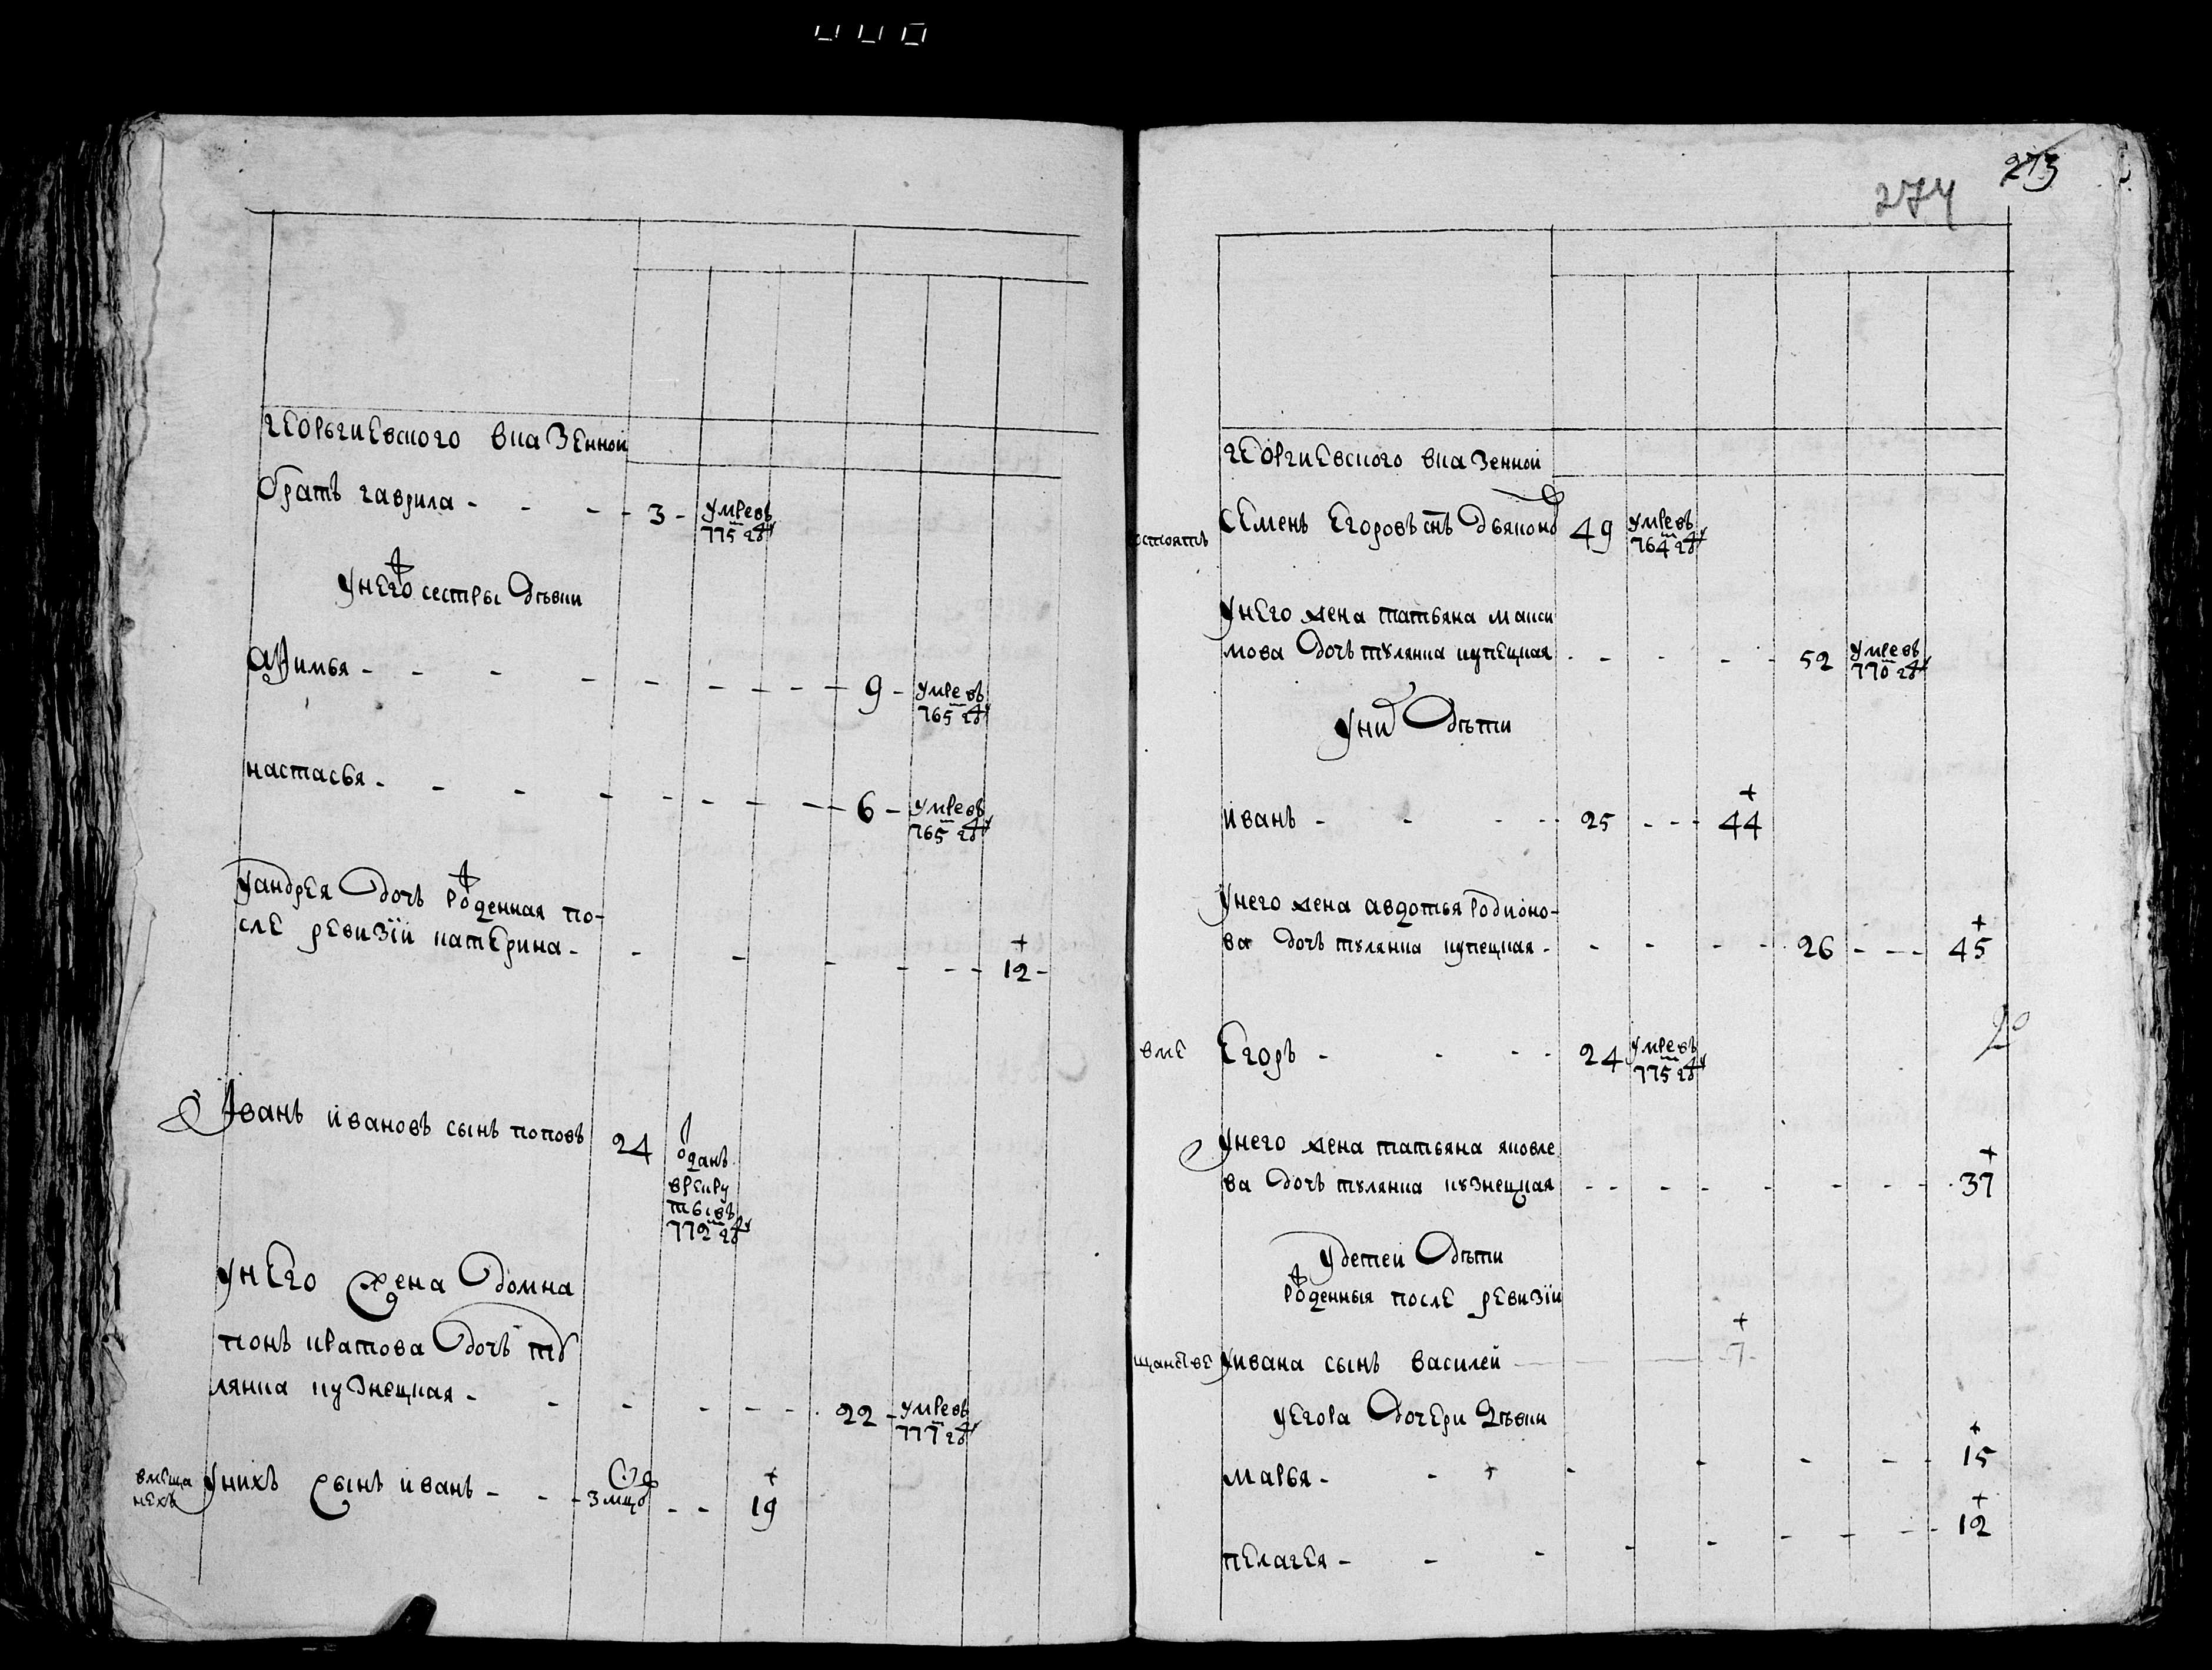 гЕОРьгиЕвского вказЕнной
братъ гаврила - - - - 3 - умре въ
775 м гдѣ
у нЕго сестры дѣвки
аѳимья - - - - - - - - - 9 - умре въ
765 м гдѣ
настасья - - - - - - - - - 6 - умре въ
765 м гдѣ
у андрЕя дочь рожденная по-
слЕ рЕвизіи катЕрина - - - - - - - +
12 -
Иванъ ивановъ сынъ поповъ 24 отданъ
врЕкру
ты въ
772 м гдѣ
у нЕго жена домна
понъкратова дочь ту
лянка кузнецкая - - - - - - 22 - умре въ
777 м гдѣ
вмЕща
нЕхъ у нихъ сынъ иванъ - - - 3 мцѡ - - +
19
273
274
гЕОРгиЕвского вказенной
стоятъ СЕменъ Егоровъ снъ дьяконо 49 умре въ
764 м гдѣ
у нЕго жена татьяна макси
мова дочь тулянка купЕцкая - - - - 52 умре въ
770 м гдѣ
у них дѣти
иванъ - - - - 25 - - - +
44
у него жена авдотья родионо-
ва дочь тулянка купецкая - - - - - 26 - - - +
45
вмЕ Егоръ - - - - 24 умре въ
775 м гдѣ
у него жена татьяна яковле
ва дочь тулянка кузнецкая - - - - - - - - +
37
у детей дѣти
рожденныя послЕ рЕвизіи
щанствЕ у ивана сынъ василей - +
7 -
у Егора дочЕри дѣвки
марья - - - - - - - +
15
пЕлагЕя - - - - - - - - +
12